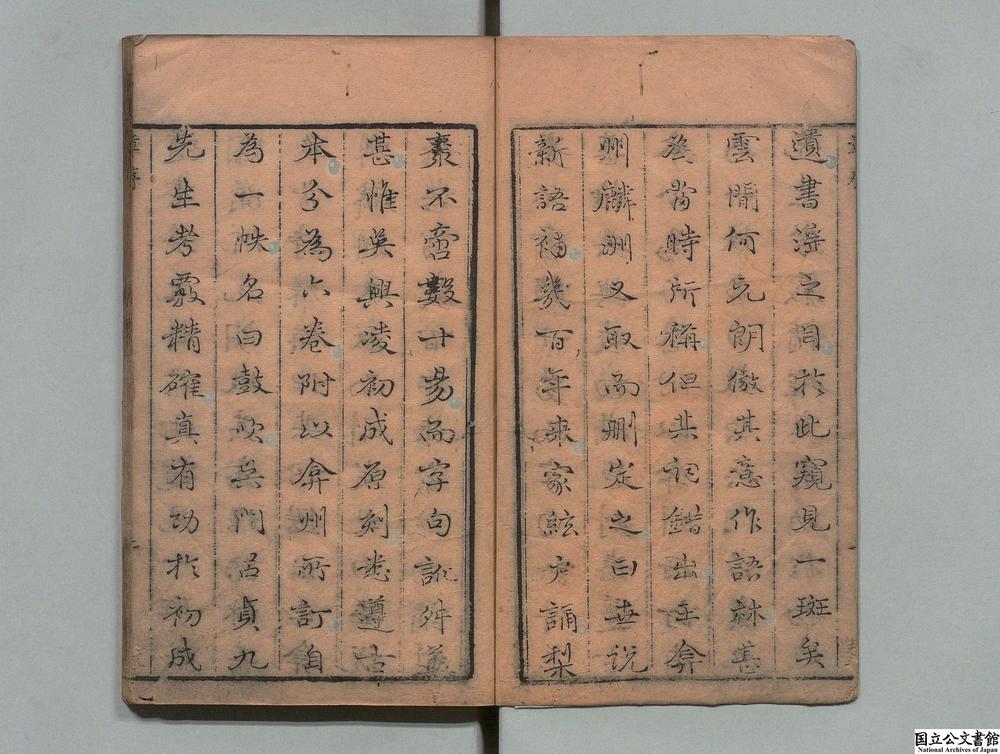 遺書淫之目於此窺見一斑矣
雲間何元朗倣其意作語林甚
為當時所稱但其詞錯出王弇
州麟洲又取而刪定之曰世說
新語補幾百年来家絃户誦梨
棗不啻數十易而字句訛舛益
甚惟吳興凌初成原刻悉遵古
本分為六卷附以弇州所訂自
為一帙名曰鼓吹吳門呂貞九
先生考覈精確真有功於初成
国立公文書館
National Archives of Japan